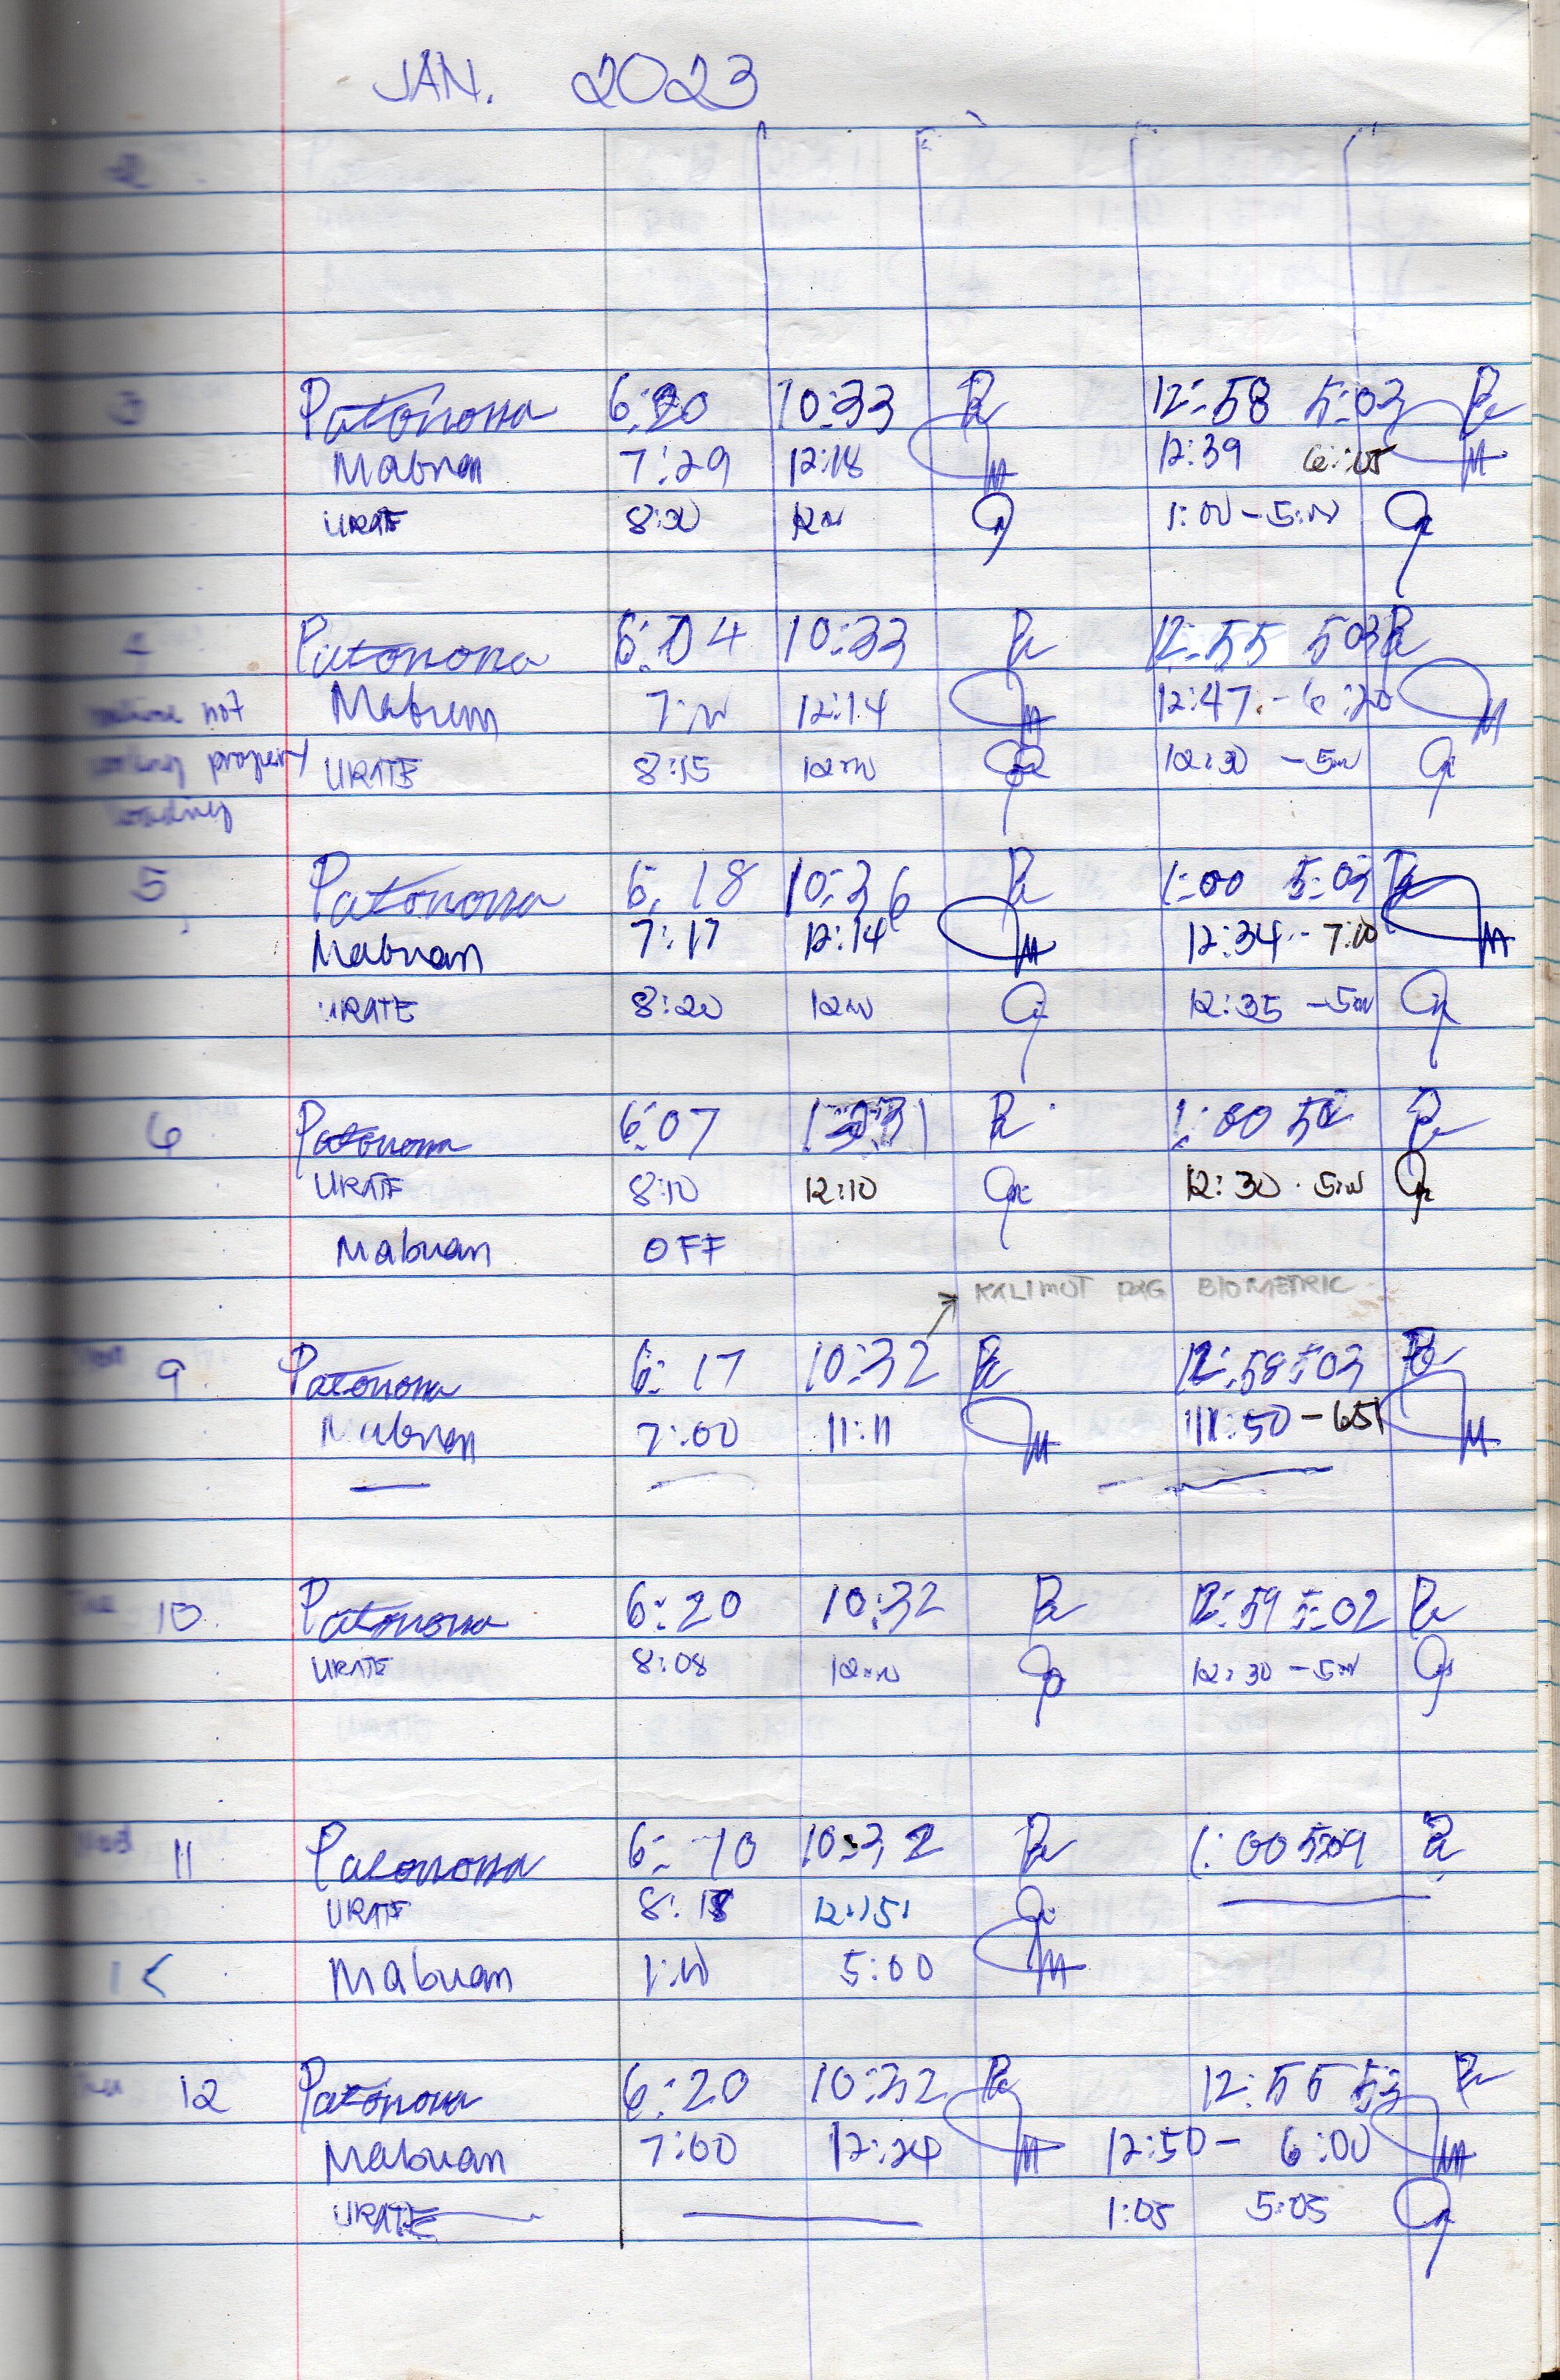 JAN. 2023
2
3 Patonona 6:20 10:33 12:58 5:03
Mabuan 7:29 12:18 12:39 6:05
URATE 8:20 12nn 1:00-5:00
4 Patonona 6:04 10:33 12:55 503
not Mabuan 7:00 12:14 12:47 - 6:20
properly URATE 8:15 12nn 12:30 -5:00
loading
5 Patonona 6:18 10:36 1:00 5:03
Mabuan 7:17 12:14 12:34 - 7:10
URATE 8:20 12nn 12:35 -5:00
6 Patonona 6:07 1:00
URATE 8:10 12:10 12:30 - 5:00
Mabuan OFF
KALIMOT PAG BIOMETRIC
9 Patonona 6:17 10:32 12:58 5:03
Mabuan 7:00 11:11 11:50 - 651
Tue 10 Patonona 6:20 10:32 12:59 5:02
URATE 8:08 12nn 12:30 -5:00
Wed 11 Patonona 6:10 10:32 1:00 5:09
URATE 8:18 12:15
Mabuan 1:10 5:00
12 Patonona 6:20 10:32 12:55 5:3
Mabuan 7:00 12:24 12:50 - 6:00
URATE 1:05 5:05